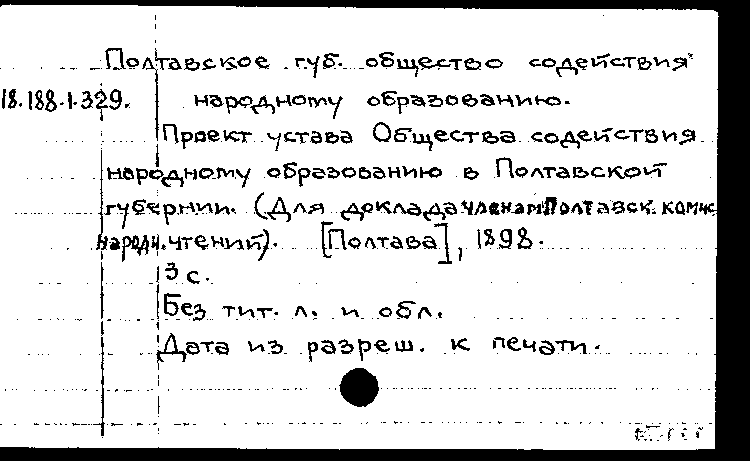 Полтавское губ. общество содействия
18.188.1.329. народному образованию.
Проект устава Общества содействия
народному образованию в Полтавской
губернии. (Для доклада членам Полтавск. комис
народн. чтений). [Полтава], 1898.
3 с.
Без тит. л. и обл.
Дата из разреш. к печати.